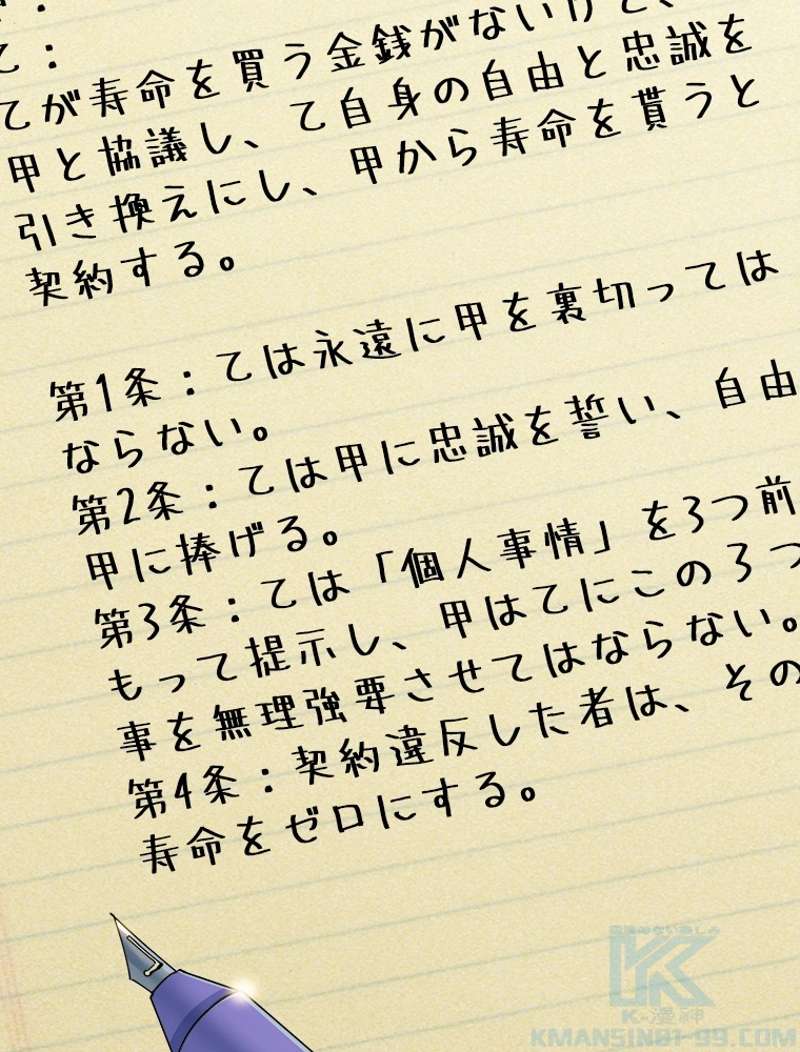 て：
てが寿命を買う金銭がないけど、
甲と協議し、て自身の自由と忠誠を
引き換えにし、甲から寿命を貰うと
契約する。
第1条：ては永遠に甲を裏切っては
ならない。
第2条：ては甲に忠誠を誓い、自由
甲に捧げる。
第3条：ては「個人事情」を3つ前
もって提示し、甲はてにこの3つ
事を無理強要させてはならない。
第4条：契約違反した者は、その
寿命をゼロにする。
K-漫神
KMANSIN01-99.COM